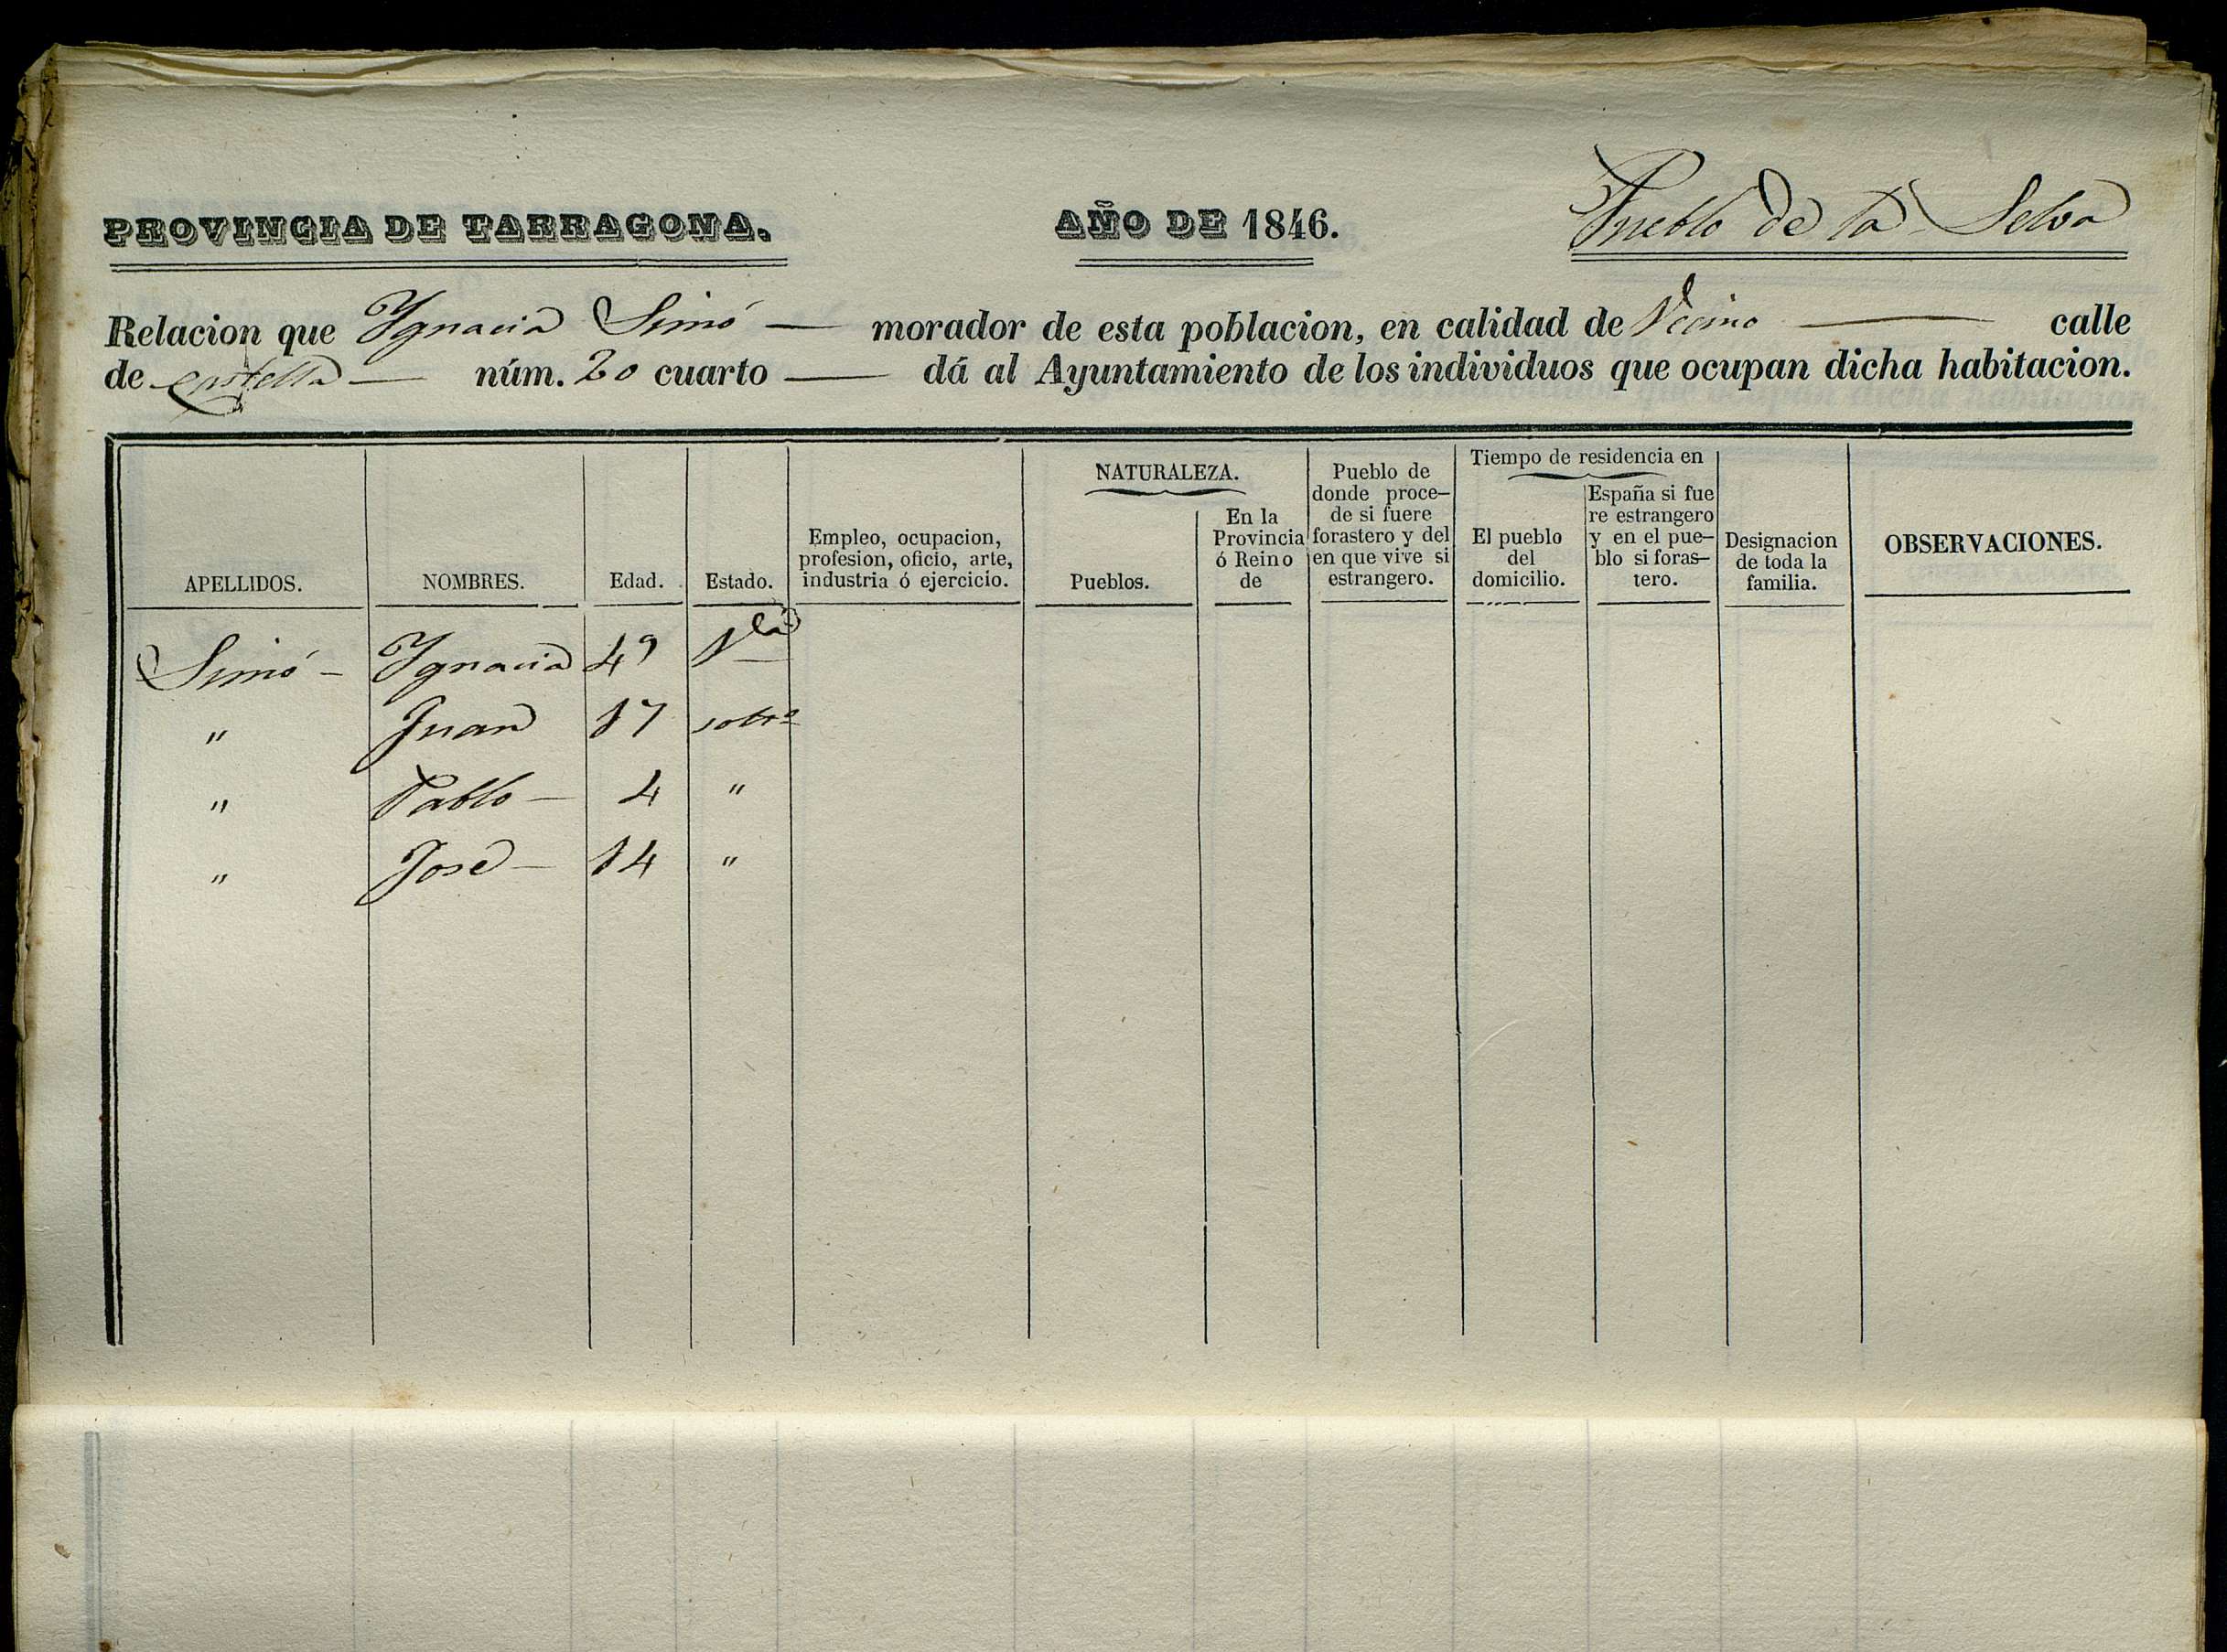 PROVINCIA DE TARRAGONA. AÑO DE 1846. Pueblo de la Selva
Relacion que Ygnacia Simó — morador de esta poblacion, en calidad de Vecino — calle
de — núm. 20 cuarto — dá al Ayuntamiento de los individuos que ocupan dicha habitacion.
APELLIDOS.
NOMBRES.
Edad.
Estado.
Empleo, ocupacion,
profesion, oficio, arte,
industria ó ejercicio.
NATURALEZA.
Pueblos.
En la
Provincia
ó Reino
de
Pueblo de
donde proce-
de si fuere
forastero y del
en que vive si
estrangero.
Tiempo de residencia en
El pueblo
del
domicilio.
España si fue
re estrangero
y en el pue-
blo si foras-
tero.
Designacion
de toda la
familia.
OBSERVACIONES.
Simó — Ygnacia 49 Vda
" Juan 17 soltº
" Pablo — 4 "
" José — 14 "